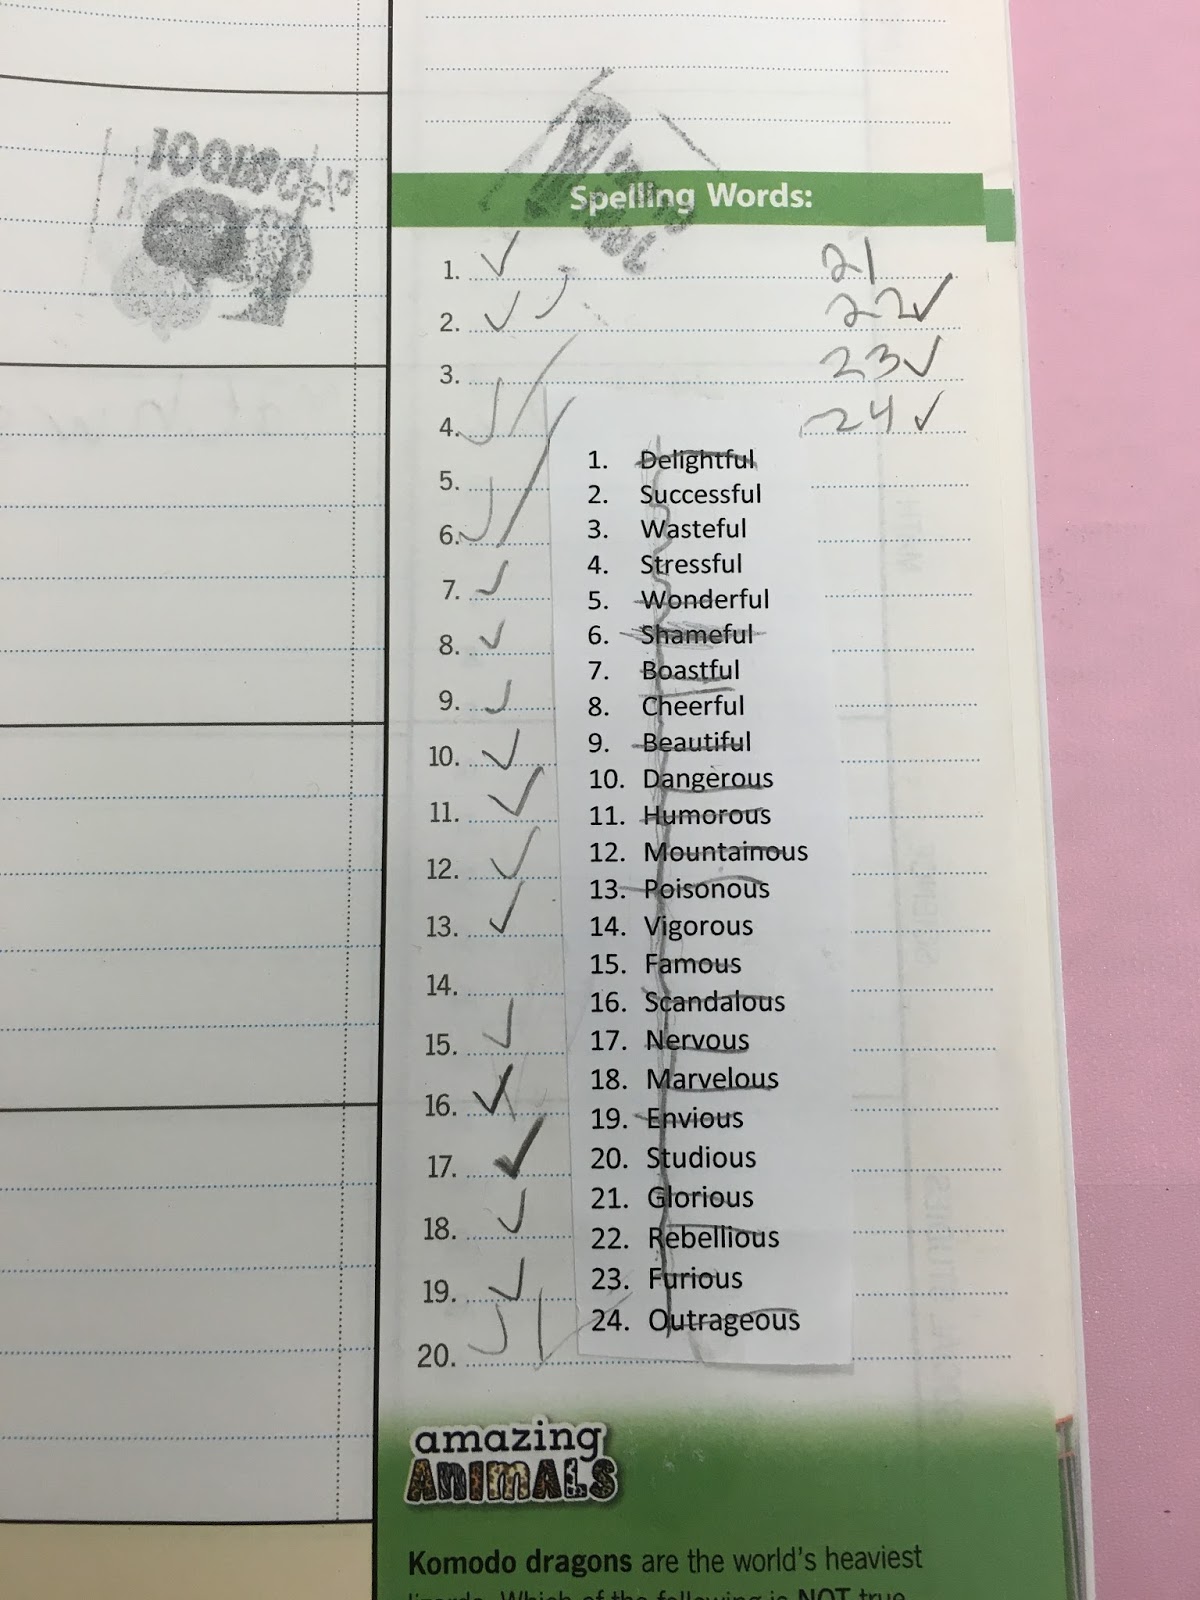 Spelling Words:
1. 21
2. 22
3. 23
4. 24
5.
6.
7.
8.
9.
10.
11.
12.
13.
14.
15.
16.
17.
18.
19.
20.
1. Delightful
2. Successful
3. Wasteful
4. Stressful
5. Wonderful
6. Shameful
7. Boastful
8. Cheerful
9. Beautiful
10. Dangerous
11. Humorous
12. Mountainous
13. Poisonous
14. Vigorous
15. Famous
16. Scandalous
17. Nervous
18. Marvelous
19. Envious
20. Studious
21. Glorious
22. Rebellious
23. Furious
24. Outrageous
amazing
ANIMALS
Komodo dragons are the world's heaviest
lizards. Which of the following is NOT true